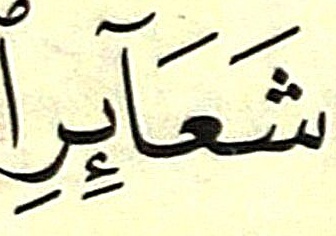 شَعَآئِرِ ا